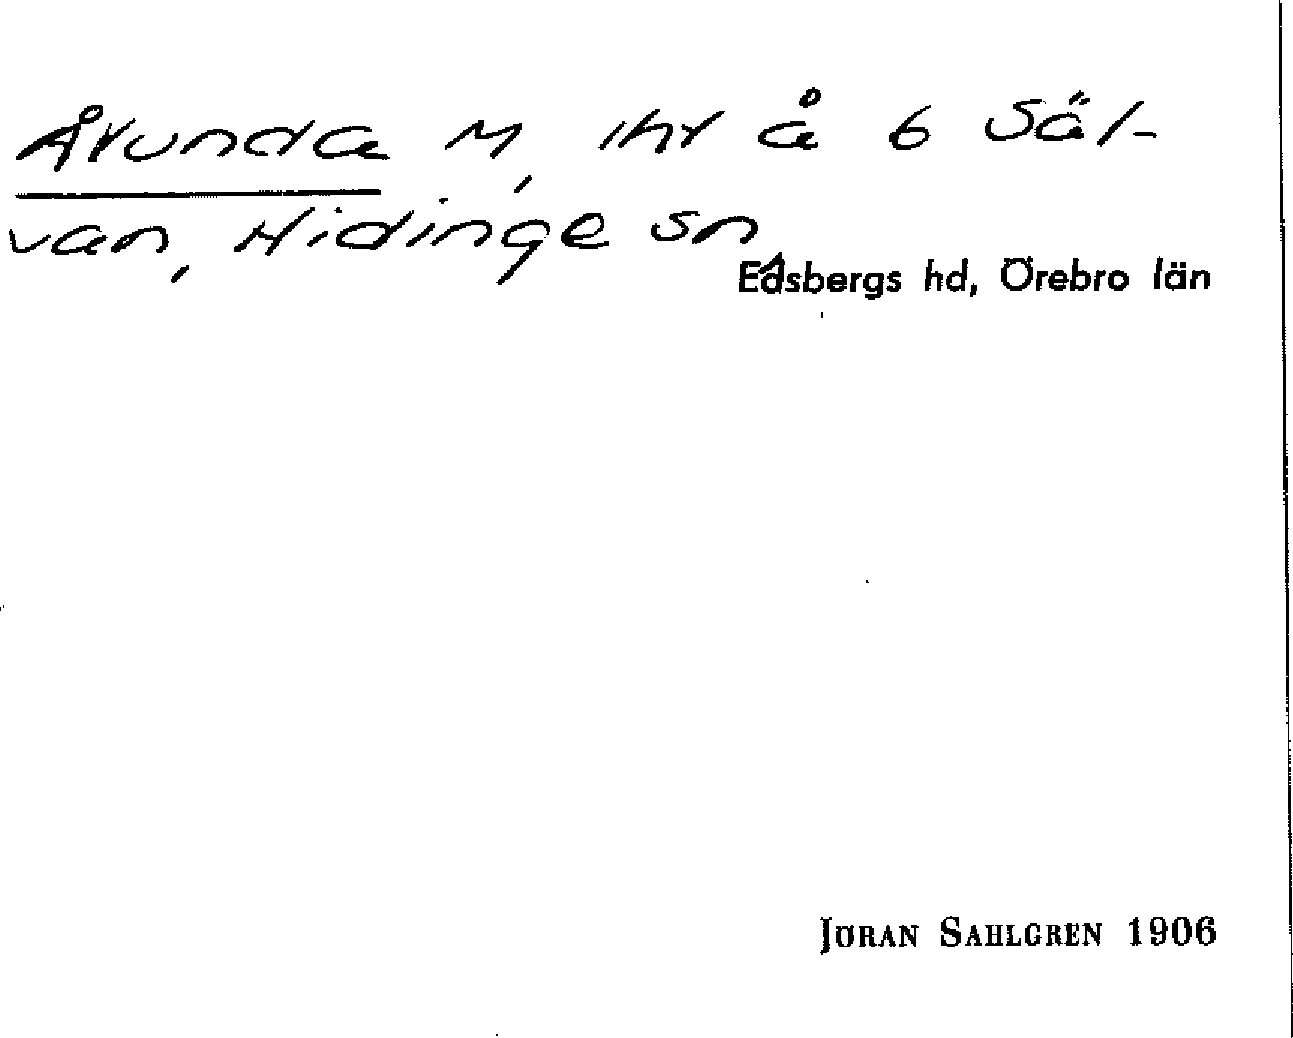 Årunda M, ihr å 6 Säl-
van, Hidinge sn,
Edsbergs hd, Örebro län
JÖRAN SAHLGREN 1906